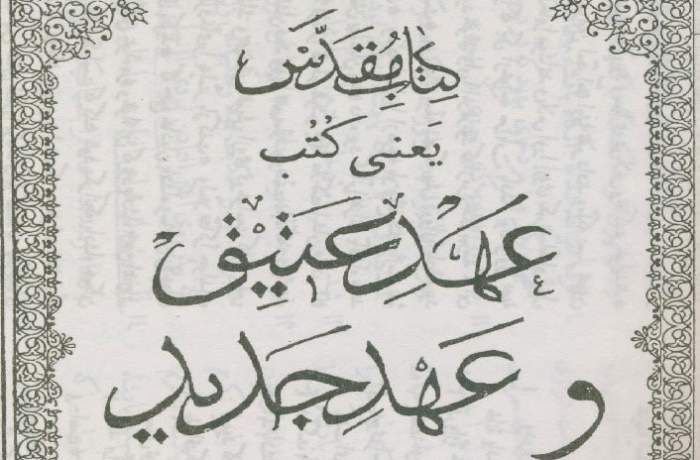 کتاب مُقدَّس
یَعنی کُتُب
عَهدِ عَتیق
و عَهدِ جَدید